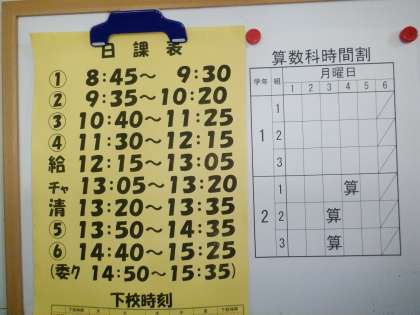 日課表
① 8:45～ 9:30
② 9:35～10:20
③ 10:40～11:25
④ 11:30～12:15
給 12:15～13:05
チャ 13:05～13:20
清 13:20～13:35
⑤ 13:50～14:35
⑥ 14:40～15:25
(委ク 14:50～15:35)
下校時刻
算数科時間割
学年 組 月曜日
1 2 3 4 5 6
1 1
2
3
2 1 算
2 算
3 算